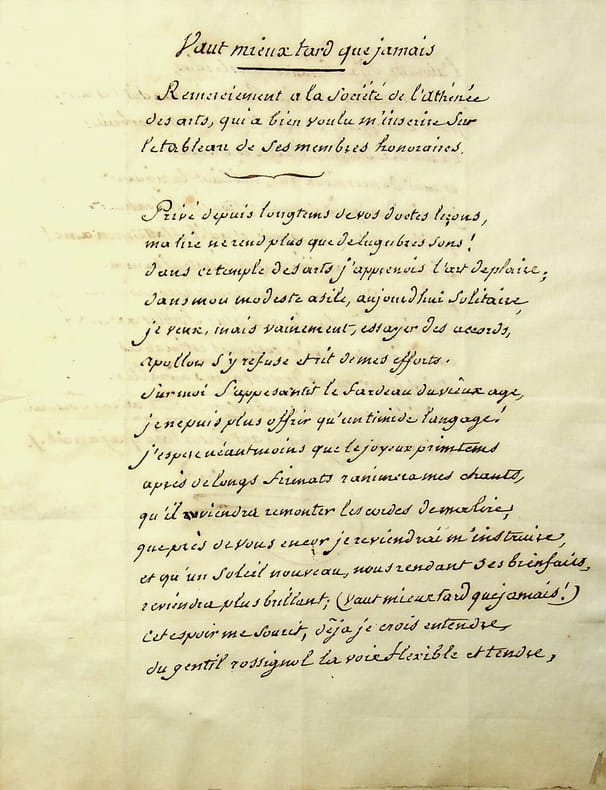 Vaut mieux tard que jamais
Remerciement a la Société de l'Athénée
des arts, qui a bien voulu m'inscrire Sur
le tableau de Ses membres honoraires.
Privé depuis longtems de vos doctes leçons,
ma lire ne rend plus que de lugubres sons!
dans ce temple des arts j'apprenois l'art de plaire;
dans mon modeste asile, aujourdhui Solitaire,
je veux, mais vainement, essayer des acords,
apollon s'y refuse et rit de mes efforts.
Sur moi S'appesantit le fardeau du vieux age,
je ne puis plus offrir qu'un timide langage!
j'espere néantmoins que le joyeux printems
après de longs frimats ranimera mes chants,
qu'il reviendra remonter les cordes de ma lire,
que près de vous encor je reviendrai m'instruire,
et qu'un Soleil nouveau, nous rendant Ses bienfaits,
reviendra plus brillant; (vaut mieux tard que jamais!)
Cet espoir me Sourit, déja je crois entendre
du gentil rossignol la voix flexible et tendre,